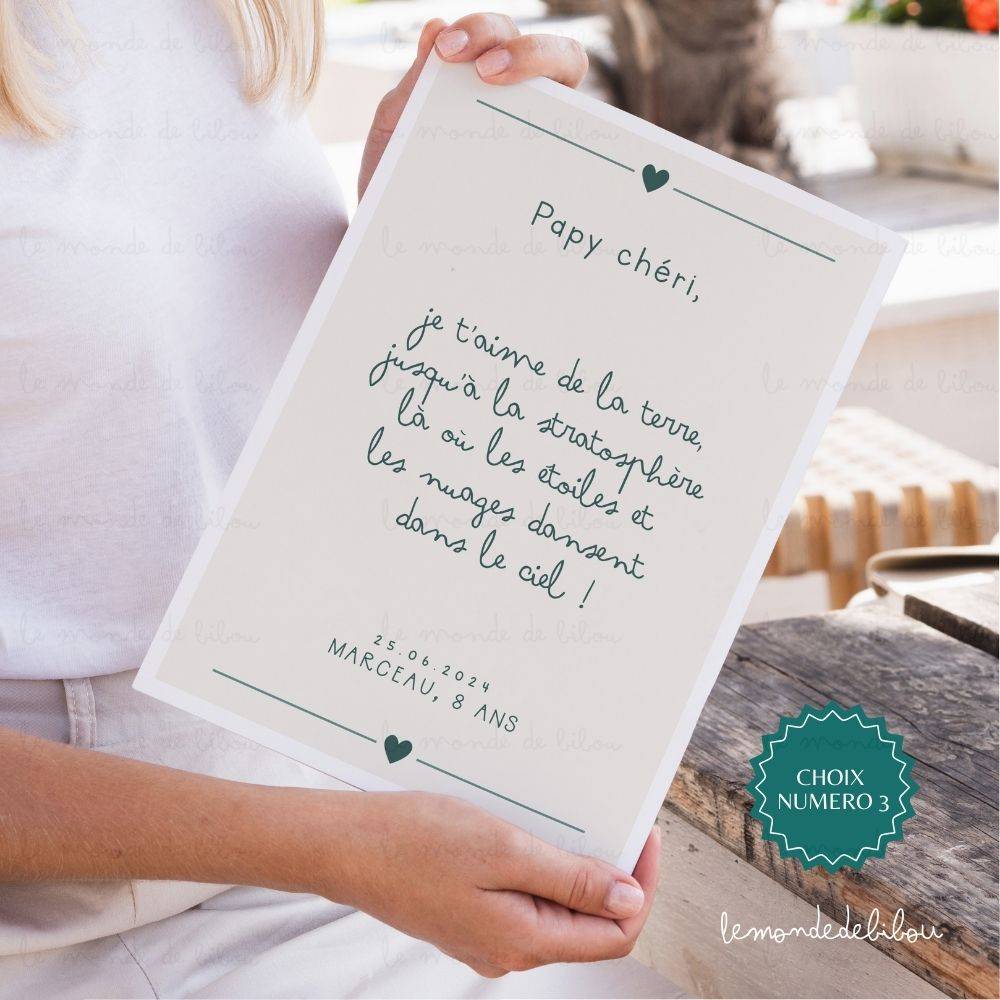 Papy chéri,
je t'aime de la terre,
jusqu'à la stratosphère
là où les étoiles et
les nuages dansent
dans le ciel !
25.06.2024
MARCEAU, 8 ANS
CHOIX
NUMERO 3
lemondedebilou
le monde de bilou